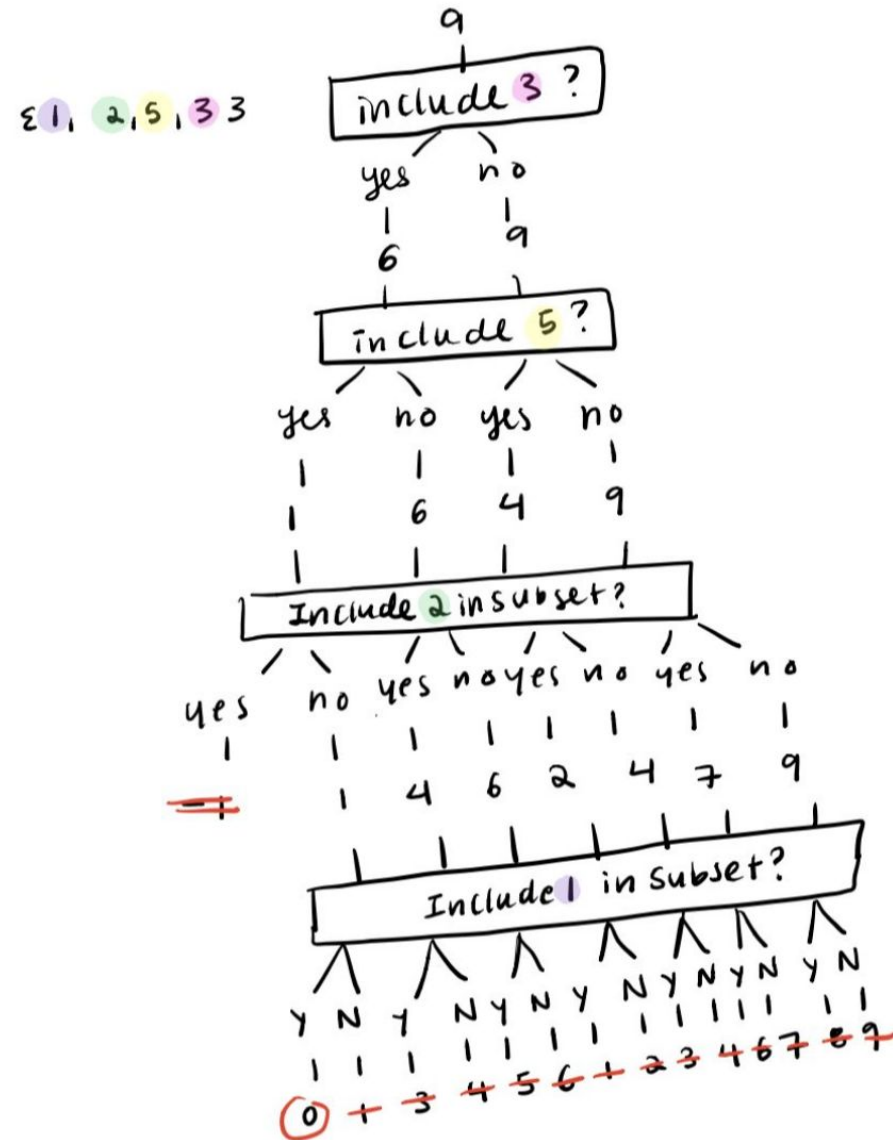 9
{1, 2, 5, 3}
include 3 ?
yes no
6 9
include 5 ?
yes no yes no
1 6 4 9
Include 2 in subset?
yes no yes no yes no yes no
-1 1 4 6 2 4 7 9
Include 1 in subset?
Y N Y N Y N Y N Y N Y N Y N
0 1 3 4 5 6 1 2 3 4 6 7 8 9